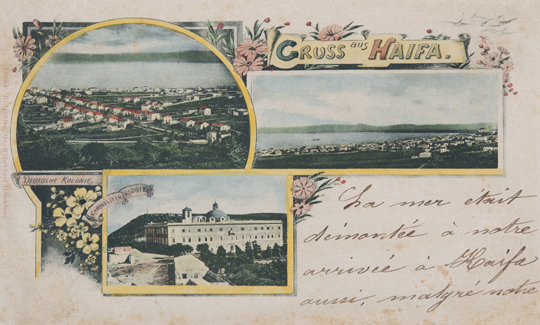 GRUSS aus HAIFA.
DEUTSCHE KOLONIE.
KARMELITERKLOSTER
La mer était
démontée à notre
arrivée à Haïfa
aussi, malgré notre